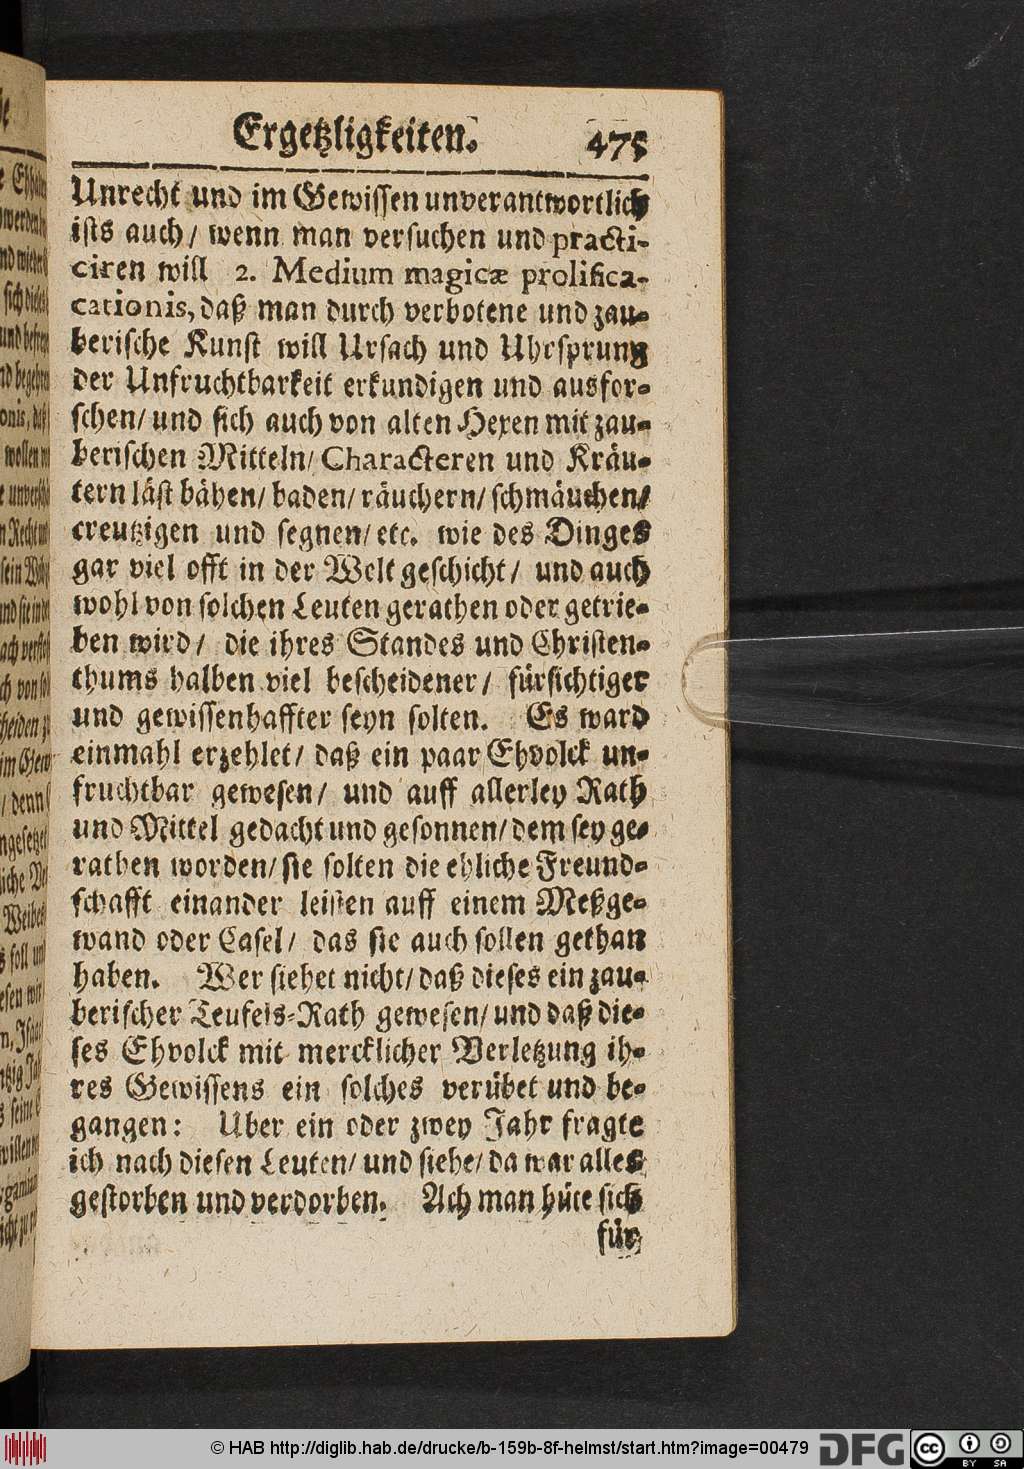 Ergetzligkeiten. 475
Unrecht und im Gewissen unverantwortlich
ists auch/ wenn man versuchen und practi-
ciren will 2. Medium magicæ prolifica-
cationis, daß man durch verbotene und zau-
berische Kunst will Ursach und Uhrsprung
der Unfruchtbarkeit erkundigen und ausfor-
schen/ und sich auch von alten Hexen mit zau-
berischen Mitteln/ Characteren und Kräu-
tern läst bähen/ baden/ räuchern/ schmäuchen/
creutzigen und segnen/ etc. wie des Dinges
gar viel offt in der Welt geschicht/ und auch
wohl von solchen Leuten gerathen oder getrie-
ben wird/ die ihres Standes und Christen-
thums halben viel bescheidener/ fürsichtiger
und gewissenhaffter seyn solten. Es ward
einmahl erzehlet/ daß ein paar Ehvolck un-
fruchtbar gewesen/ und auff allerley Rath
und Mittel gedacht und gesonnen/ dem sey ge-
rathen worden/ sie solten die ehliche Freund-
schafft einander leisten auff einem Meßge-
wand oder Casel/ das sie auch sollen gethan
haben. Wer siehet nicht/ daß dieses ein zau-
berischer Teufels-Rath gewesen/ und daß die-
ses Ehvolck mit mercklicher Verletzung ih-
res Gewissens ein solches verübet und be-
gangen: Uber ein oder zwey Jahr fragte
ich nach diesen Leuten/ und siehe/ da war alles
gestorben und verdorben. Ach man hüte sich
für
© HAB http://diglib.hab.de/drucke/b-159b-8f-helmst/start.htm?image=00479 DFG cc BY SA